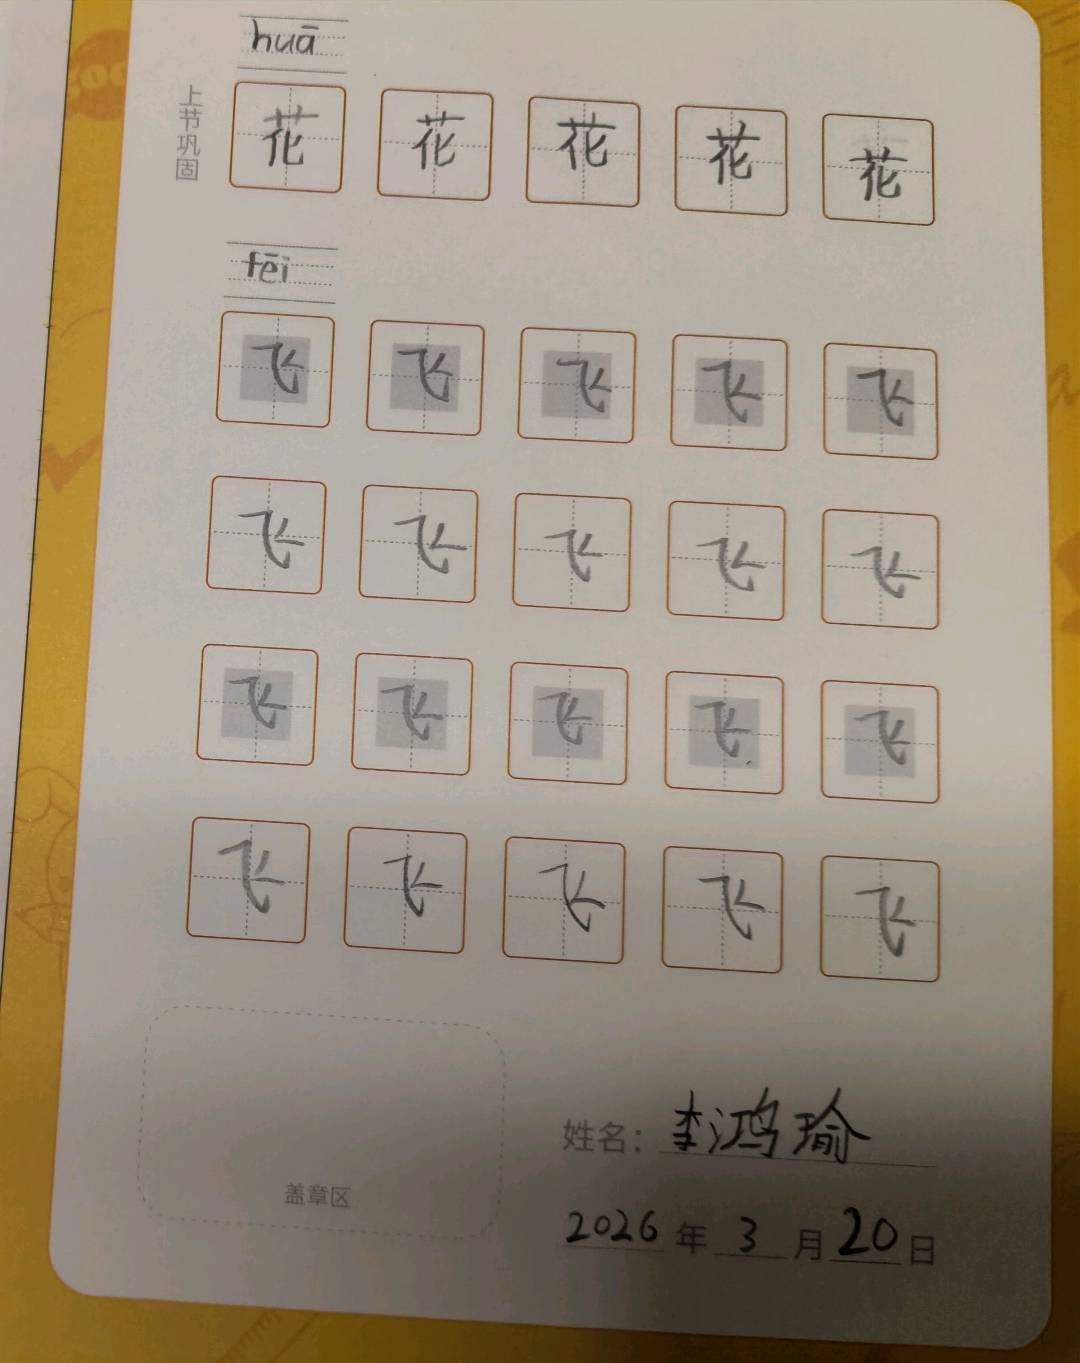 huā
上节巩固
花 花 花 花 花
fēi
飞 飞 飞 飞 飞
飞 飞 飞 飞 飞
飞 飞 飞 飞 飞
飞 飞 飞 飞 飞
姓名：李鸿瑜
盖章区
2026年3月20日